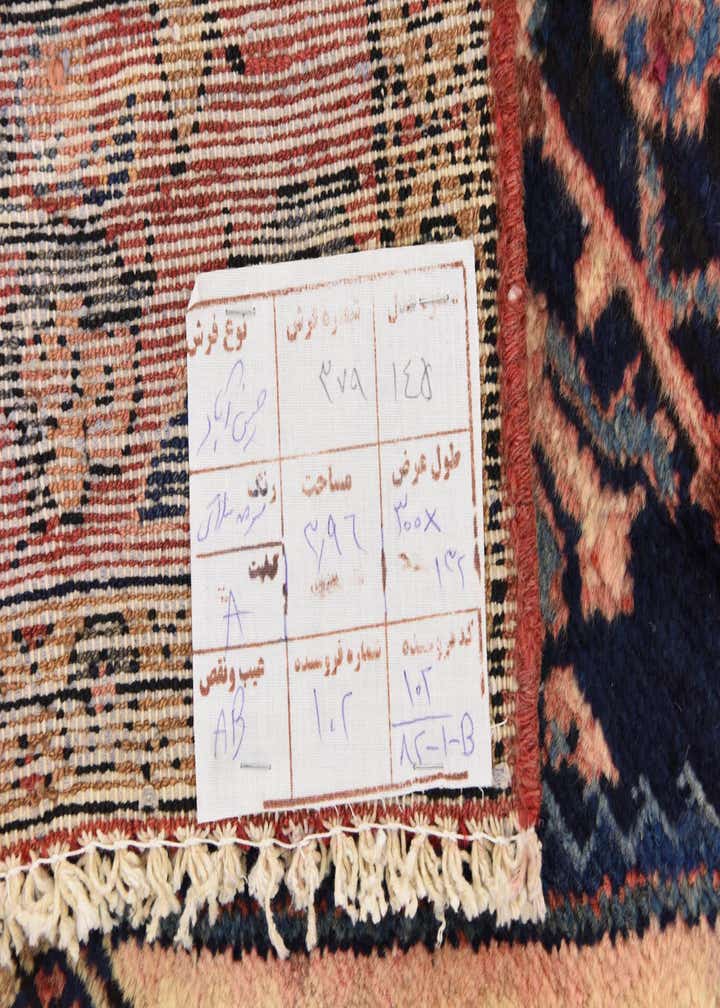 شماره فرش
نوع فرش
۱۴۵
۳۷۹
حسن آباد
طول عرض
مساحت
رنگ
۳۰۰×
۱۳۲
۳٫۹۶
کیفیت
A
کد فروشنده
شماره فروشنده
عیب و نقص
۱۰۲
۸۲-۱-B
۱۰۲
AB